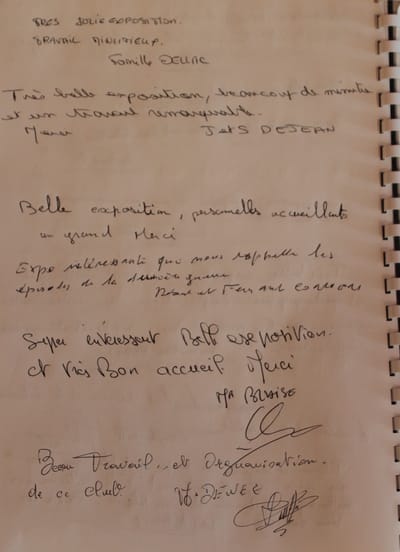 TRES JOLIE EXPOSITION.
TRAVAIL MINUTIEUX.
Famille
Très belle exposition, beaucoup de minutie
et un travail remarquable.
Merci J et S DEJEAN
Belle exposition, personnelles accueillants
un grand Merci
Expo intéressante qui nous rappelle les
épisodes de la dernière guerre
et
Super intéressant Belle exposition.
et très Bon accueil Merci
Mr BLAISE
Beau Travail.. et Organisation.
de ce club.